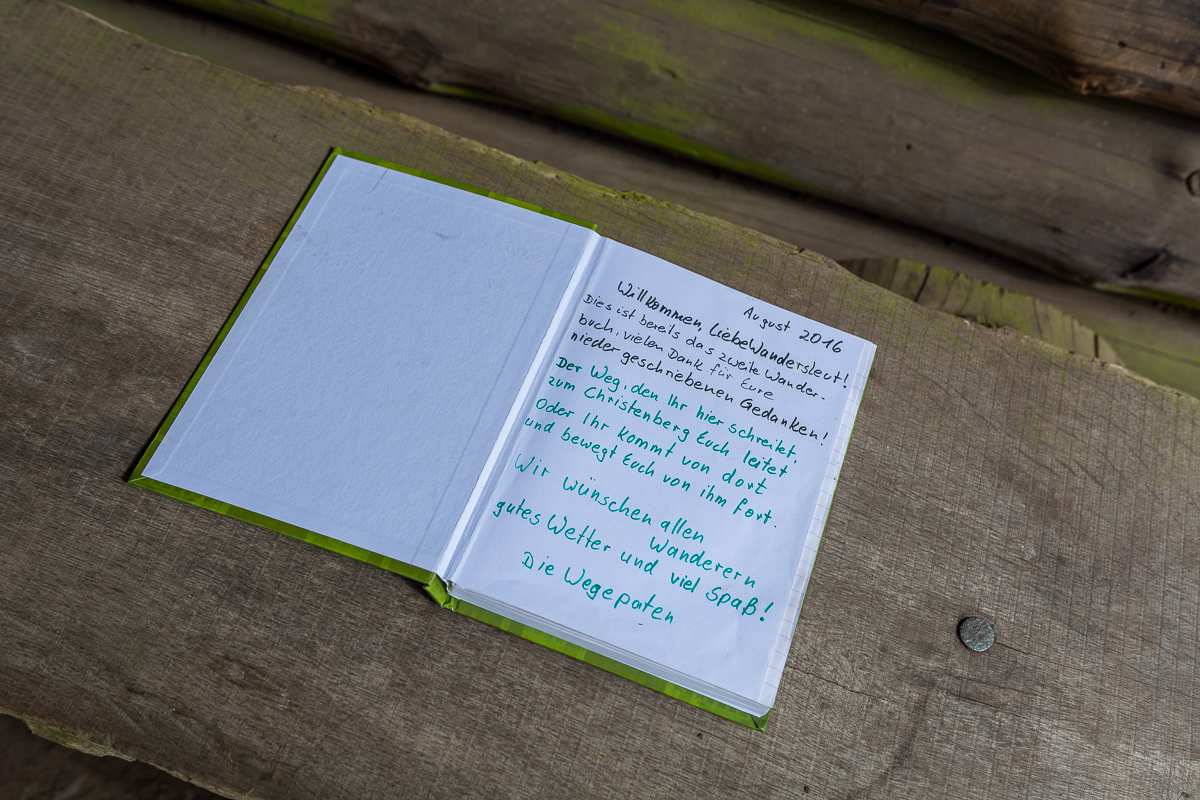 August 2016
Willkommen, Liebe Wandersleut!
Dies ist bereits das zweite Wander-
buch, vielen Dank für Eure
nieder geschriebenen Gedanken!
Der Weg, den Ihr hier schreitet,
zum Christenberg Euch leitet
Oder Ihr kommt von dort
und bewegt Euch von ihm fort.
Wir wünschen allen
Wanderern
gutes Wetter und viel Spaß!
Die Wegepaten